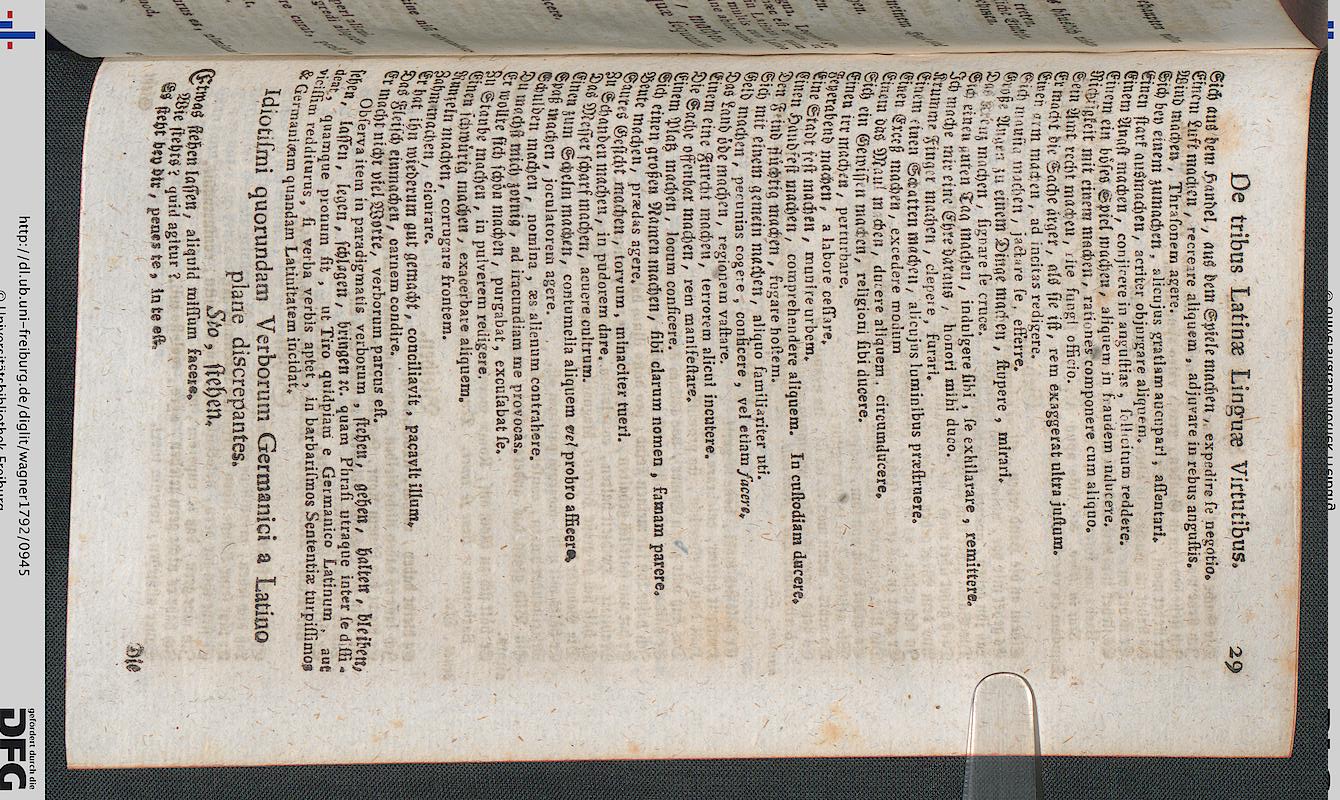 De tribus Latinæ Linguæ Virtutibus. 29
Sich aus dem Handel, aus dem Spiele machen, expedire se negotio.
Einem Luft machen, recreare aliquem, adjuvare in rebus angustis.
Wind machen, Thrasonem agere.
Sich bey einem zumachen, alicujus gratiam aucupari, assentari.
Einen starf ausmachen, acriter objurgare aliquem.
Einem Angst machen, conjicere in angustias, sollicitum reddere.
Einem ein böses Spiel machen, aliquem in fraudem inducere.
Richtigkeit mit einem machen, rationes componere cum aliquo.
Sein Amt recht machen, rite fungi officio.
Er macht die Sache ärger, als sie ist, rem exaggerat ultra justum.
Einen arm machen, ad incitas redigere.
Sich mausig machen, jactare se, efferre.
Große Augen zu einem Dinge machen, stupere, mirari.
Das Kreuz machen, signare se cruce.
Sich einen guten Tag machen, indulgere sibi, se exhilarare, remittere.
Ich mache mir eine Ehre daraus, honori mihi duco.
Krumme Finger machen, clepere, furari.
Einem einen Schatten machen, alicujus luminibus præstruere.
Einen Exceß machen, excedere modum
Einem das Maul machen, ducere aliquem, circumducere.
Sich ein Gewissen machen, religioni sibi ducere.
Einen irr machen, perturbare.
Feyerabend machen, a labore cessare.
Eine Stadt fest machen, munire urbem.
Einen Handfest machen, comprehendere aliquem. In custodiam ducere.
Den Feind flüchtig machen, fugare hostem.
Sich mit einem gemein machen, aliquo familiariter uti.
Geld machen, pecunias cogere, conficere, vel etiam facere.
Das Land öde machen, regionem vastare.
Einem eine Furcht machen, terrorem alicui incutere.
Die Sache offenbar machen, rem manifestare.
Einem Platz machen, locum conficere.
Sich einen großen Namen machen, sibi clarum nomen, famam parere.
Beute machen, prædas agere.
Saures Gesicht machen, torvum, minaciter tueri.
Zu Schanden machen, in pudorem dare.
Das Messer scharf machen, acuere cultrum.
Einen zum Schelm machen, contumelia aliquem vel probro afficere.
Spaß machen, joculatorem agere.
Schulden machen, nomina, æs alienum contrahere.
Du machst mich zornig, ad iracundiam me provocas.
Er wollte sich schön machen, purgabat, excusabat se.
Zu Staube machen, in pulverem redigere.
Einen schwürig machen, exacerbare aliquem.
Runzeln machen, corrugare frontem.
Zahmmachen, cicurare.
Er hat ihn wiederum gut gemacht, conciliavit, pacavit illum.
Das Fleisch einmachen, carnem condire.
Er macht nicht viel Worte, verborum parcus est.
Observa item in paradigmatis verborum, stehen, gehen, halten, bleiben,
sehen, lassen, legen, schlagen, bringen ꝛc. quam Phrasi utraque inter se dissi-
deat, quamque pronum sit, ut Tiro quidpiam e Germanico Latinum, aut
vicissim redditurus, si verba verbis aptet, in barbarismos Sententiæ turpissimos
& Germanicam quandam Latinitatem incidat.
Idiotismi quorundam Verborum Germanici a Latino
plane discrepantes.
Sto, stehen.
Etwas stehen lassen, aliquid missum facere.
Wie stehts? quid agitur?
Es steht bey dir, penes te, in te est.
Die
http://dl.ub.uni-freiburg.de/diglit/wagner1792/0945
© Universitätsbibliothek Freiburg
gefördert durch die
DFG